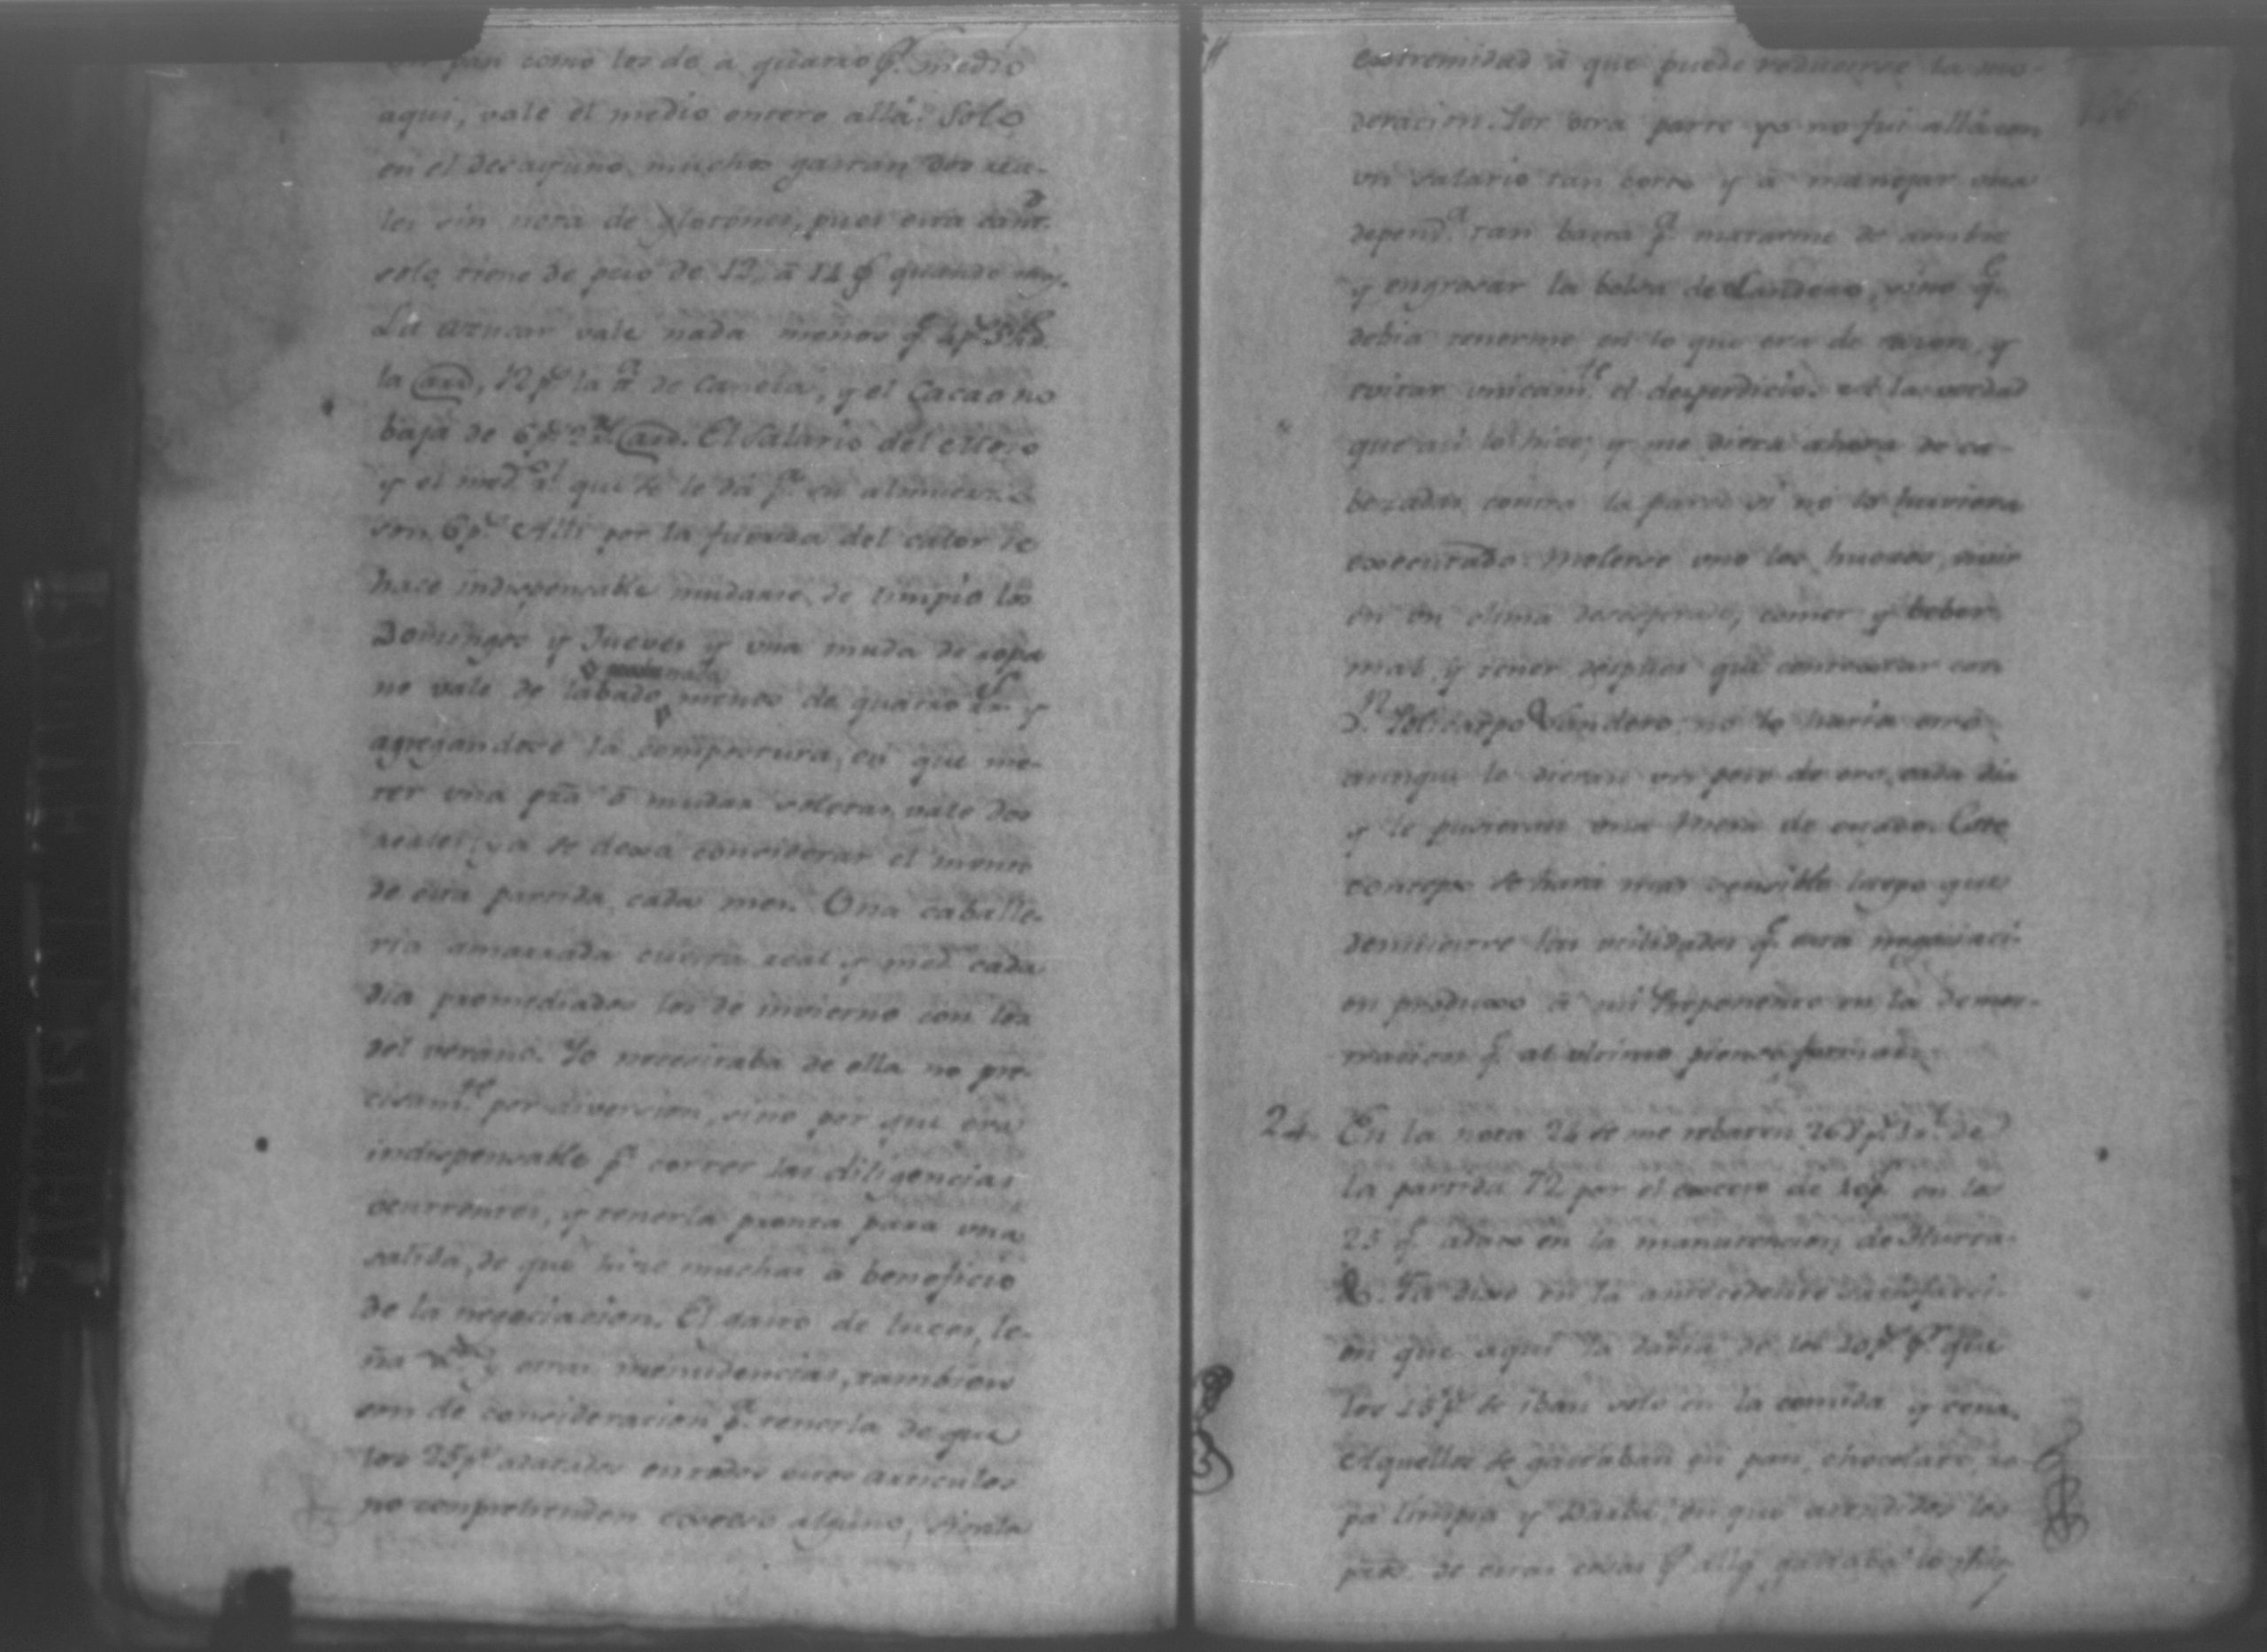 pan como los de a quatro p.r medio
aqui, vale el medio entero allá. Solo
en el desayuno muchos gastan dos rea-
les sin nota de glotones, pues esta cant.d
solo tiene de peso de 12 à 14 quando mas.
La azucar vale nada menos q.e 4 p.s
la @, 12 p.s la de Canela, y el Cacao no
baja de 6 p.s 2 r.s @. El Salario del Mozo
y el med.o r.l que se le da p.a su almuerzo
son 6 p.s Alli por la fuerza del calor se
hace indispensable mudarse de limpio los
Domingos y Jueves y una muda de ropa
no vale de labado menos de quatro r.s y
agregandose la compostura, en que me-
ter una pza ô mudar soletas vale dos
reales, ya se dexa considerar el monto
de esta partida cada mes. Una caballe-
ria amarrada cuesta real y med.o cada
dia promediados los de invierno con los
del verano. Yo necesitaba de ella no pre-
cisam.te por diversion, sino por que era
indispensable p.a correr las diligencias
ocurrentes, y tenerla pronta para una
salida, de que hize muchas à beneficio
de la negociacion. El gasto de luces, le-
ña y otras menudencias, tambien
son de consideracion p.a tenerla de que
los 25 p.s datados en todos estos articulos
no comprehenden exceso alguno, sienta
extremidad â que puede reducirse la mo-
deracion. Por otra parte yo no fui allá con
un salario tan corto y â manejar una
depend.a tan basta p.a matarme de ambre
y engrosar la bolsa de Landero, sino q.e
debia tenerme en lo que era de razon, y
evitar unicam.te el desperdicio. A la verdad
que asi lo hice, y me diera ahora de ca-
bezadas contra la pared si no lo huviera
executado. Molerse uno los huesos, vivir
en un clima desesperado, comer y beber
mal, y tener despues que contestar con
D.n Policarpo Landero no lo haria otro
aunque le dieran un peso de oro cada dia
y le pusieran una Mesa de estado. Este
concepto se hará mas sensible luego que
demuestre las utilidades q.e esta negociaci-
on produxo â mi Proponente en la demos-
tracion q.e al ultimo pienso formar.
24. En la nota 24 se me rebaxan 268 p.s de
la partida 72 por el exceso de 10 p.s en los
25 q.e dato en la manutencion de
Ya dixe en la antecedente satisfacci-
on que aqui la daria de los 10 p.s p.r que
los 15 p.s se iban solo en la comida y cena.
Aquellos se gastaban en pan, chocolate, ro-
pa limpia y Barba, en que atendidos los
de estas cosas q.e alli gastaba